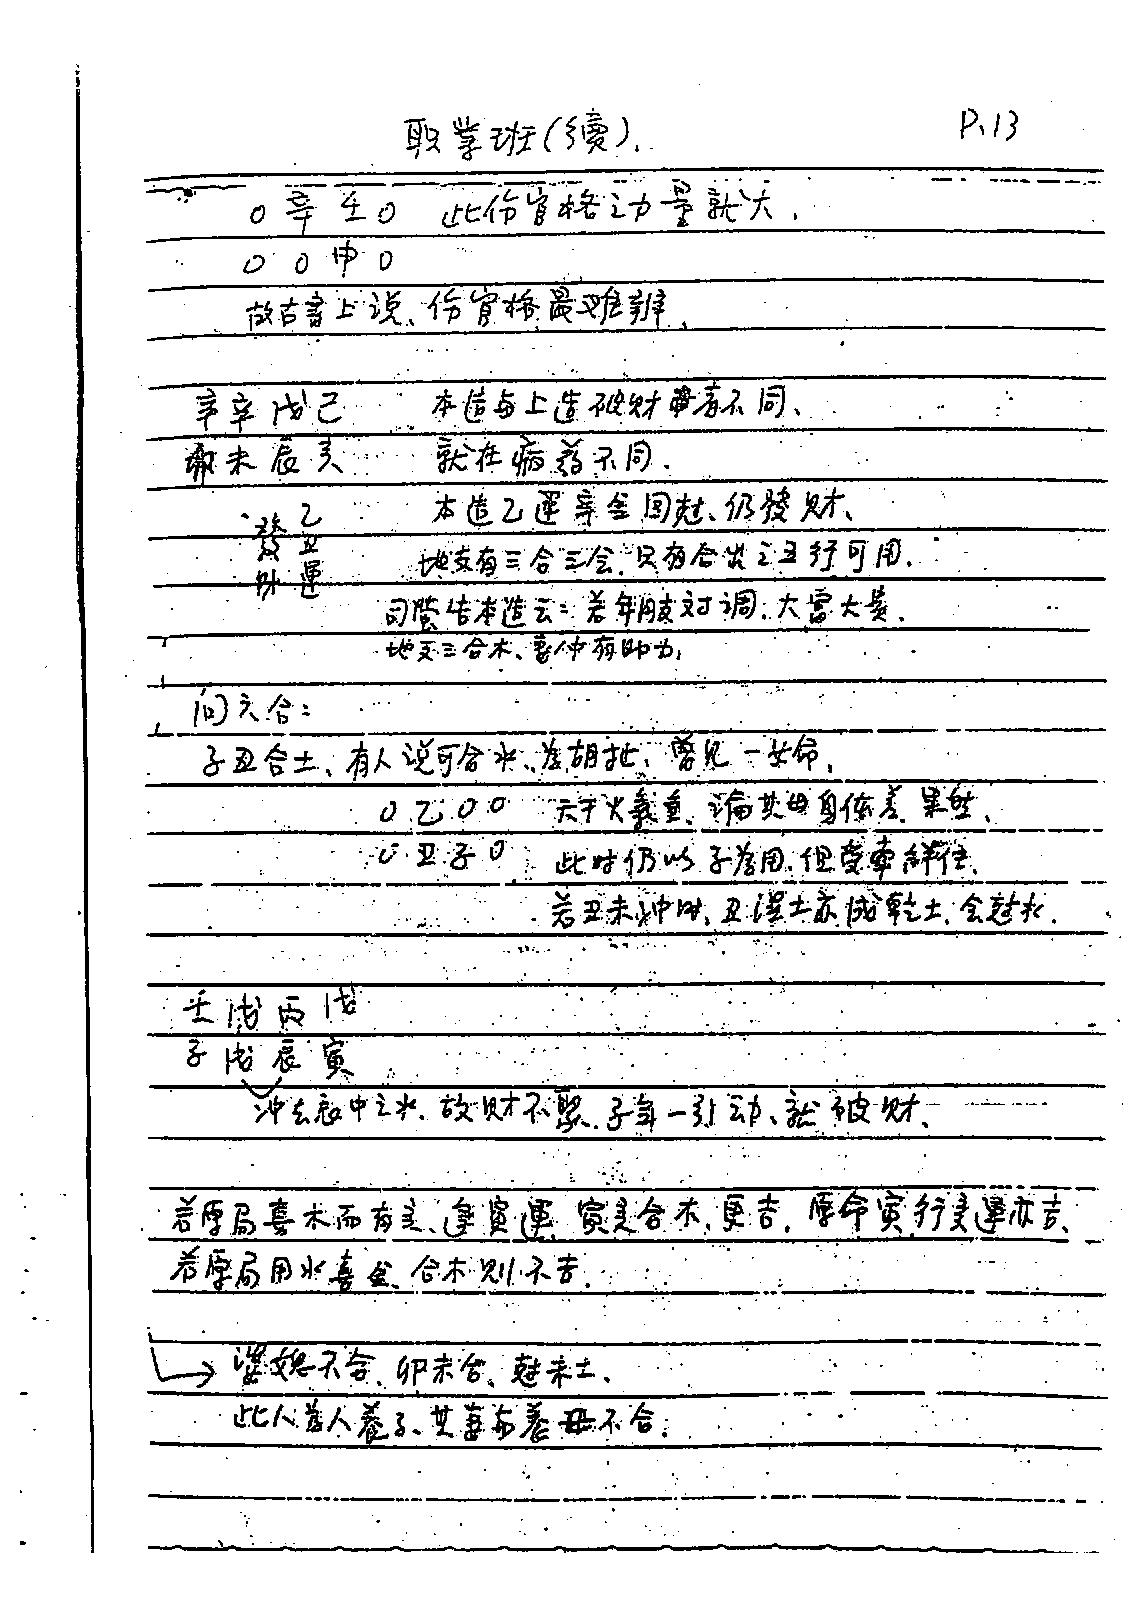 职业班(续).
P.13
0 辛 壬 0 此伤官格之力量就大.
0 0 申 0
故古書上说、伤官格最难辨.
辛 辛 戊 己 本造与上造破财者不同、
卯 未 辰 亥 就在病药不同.
乙丑運 發财
本造乙運辛金回尅、仍發财、
地支有三合三会、只有合出之五行可用.
司螢告本造云: 若年時支对调、大富大贵.
地支三合木、妻仲有助力;
问六合:
子丑合土、有人说可合水、为胡扯、曾见一女命,
0 乙 0 0 天干火義重、论其母身体差、果然、
0 丑 子 0 此时仍以子為用、但受牵絆住.
若丑未冲时、丑湿土亦成乾土、会尅水.
壬 戊 丙 戊
子 戌 辰 寅
冲去辰中之水、故财不聚、子年一引动、就破财、
若原局喜木而有亥、逢寅運、寅亥合木、更吉. 原命寅行亥運亦吉、
若原局用水喜金、合木则不吉.
婆媳不合、卯未合、尅未土.
此人為人養子、其妻与養母不合.